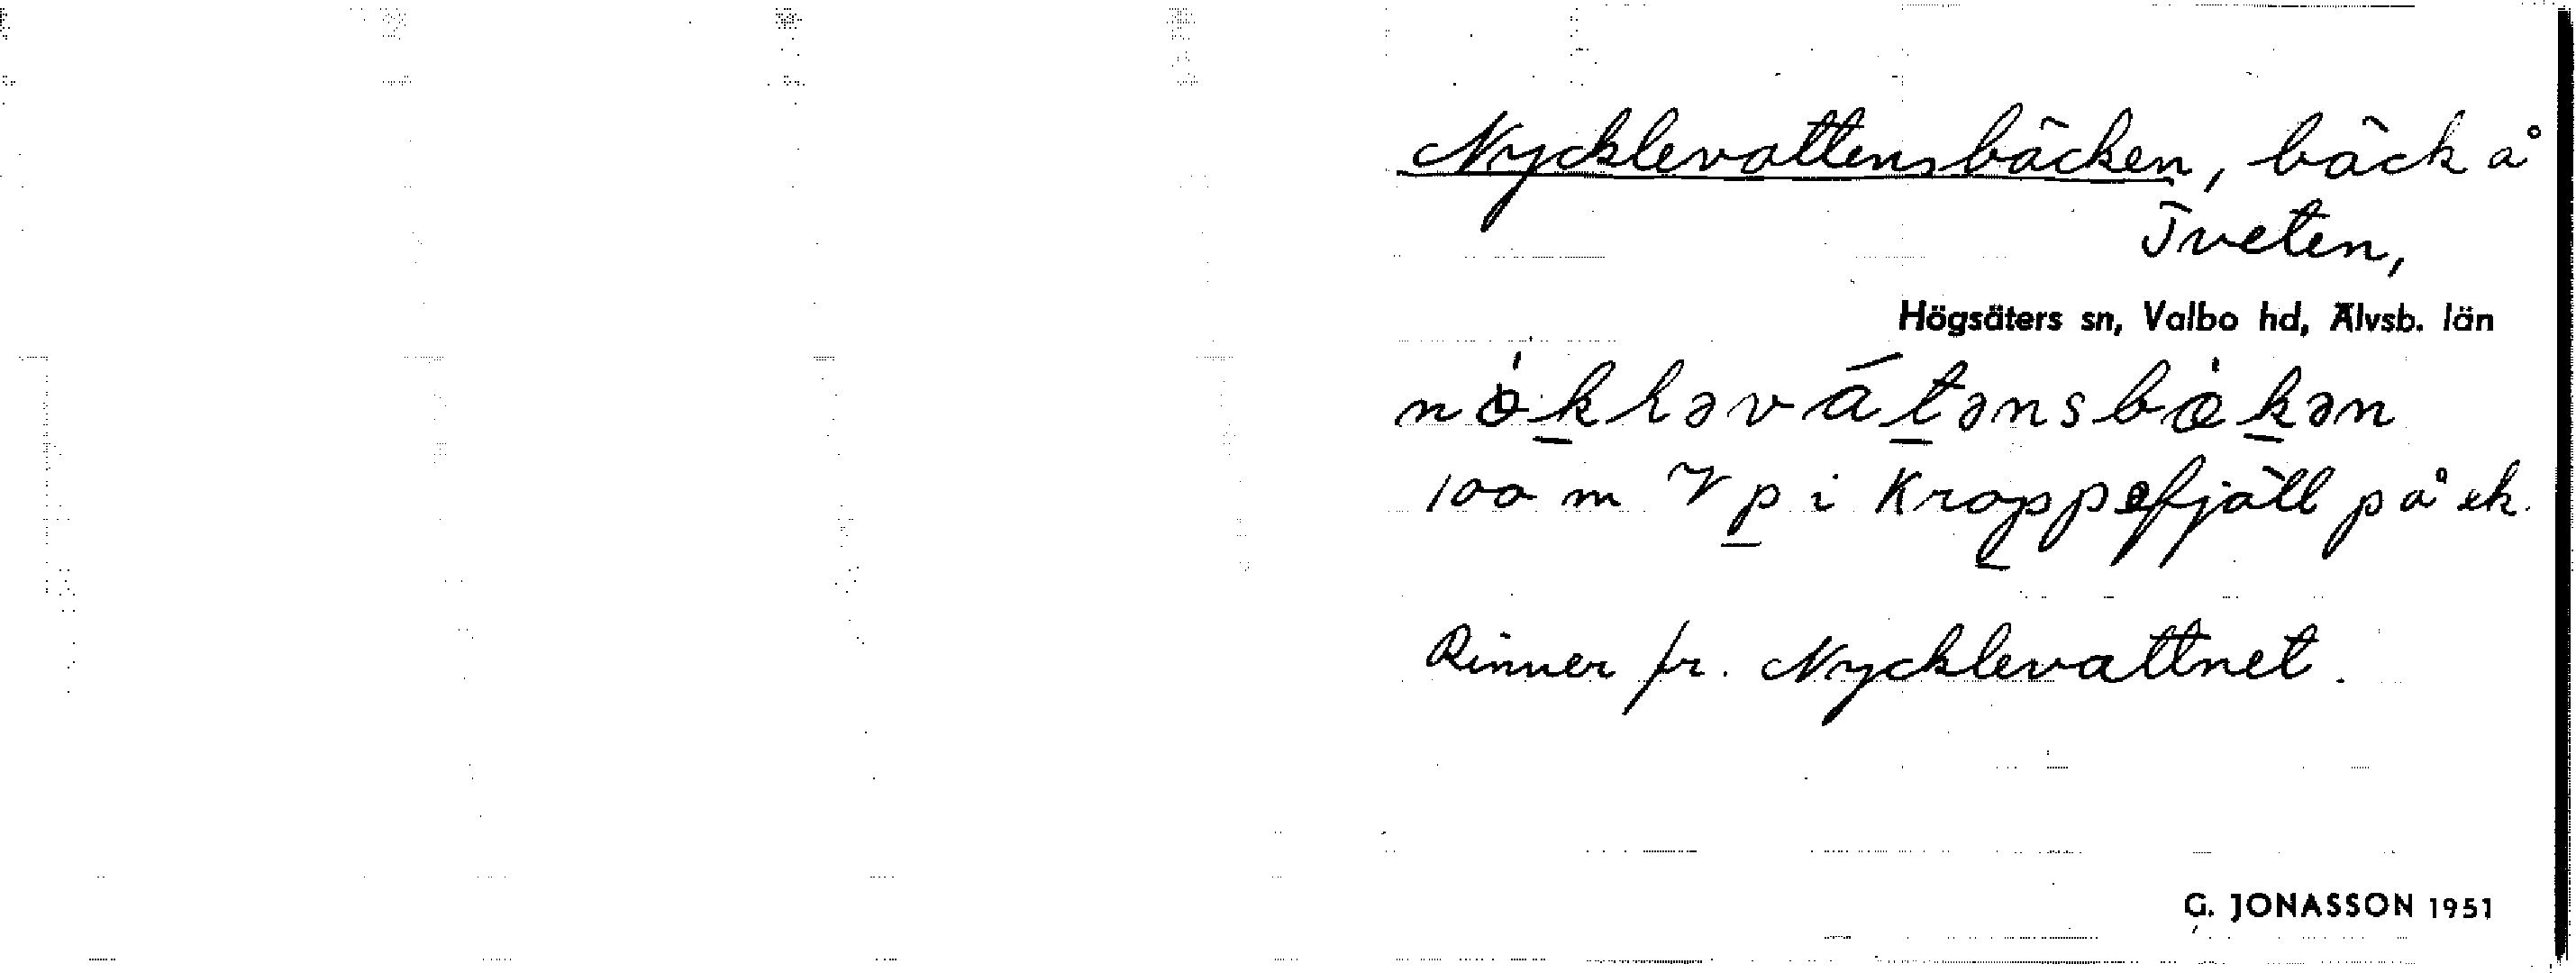 Nycklevattensbäcken, bäck å
Tveten,
Högsäters sn, Valbo hd, Älvsb. län
100 m V p i Kroppefjäll på ek.
Rinner fr. Nycklevattnet.
G. JONASSON 1951